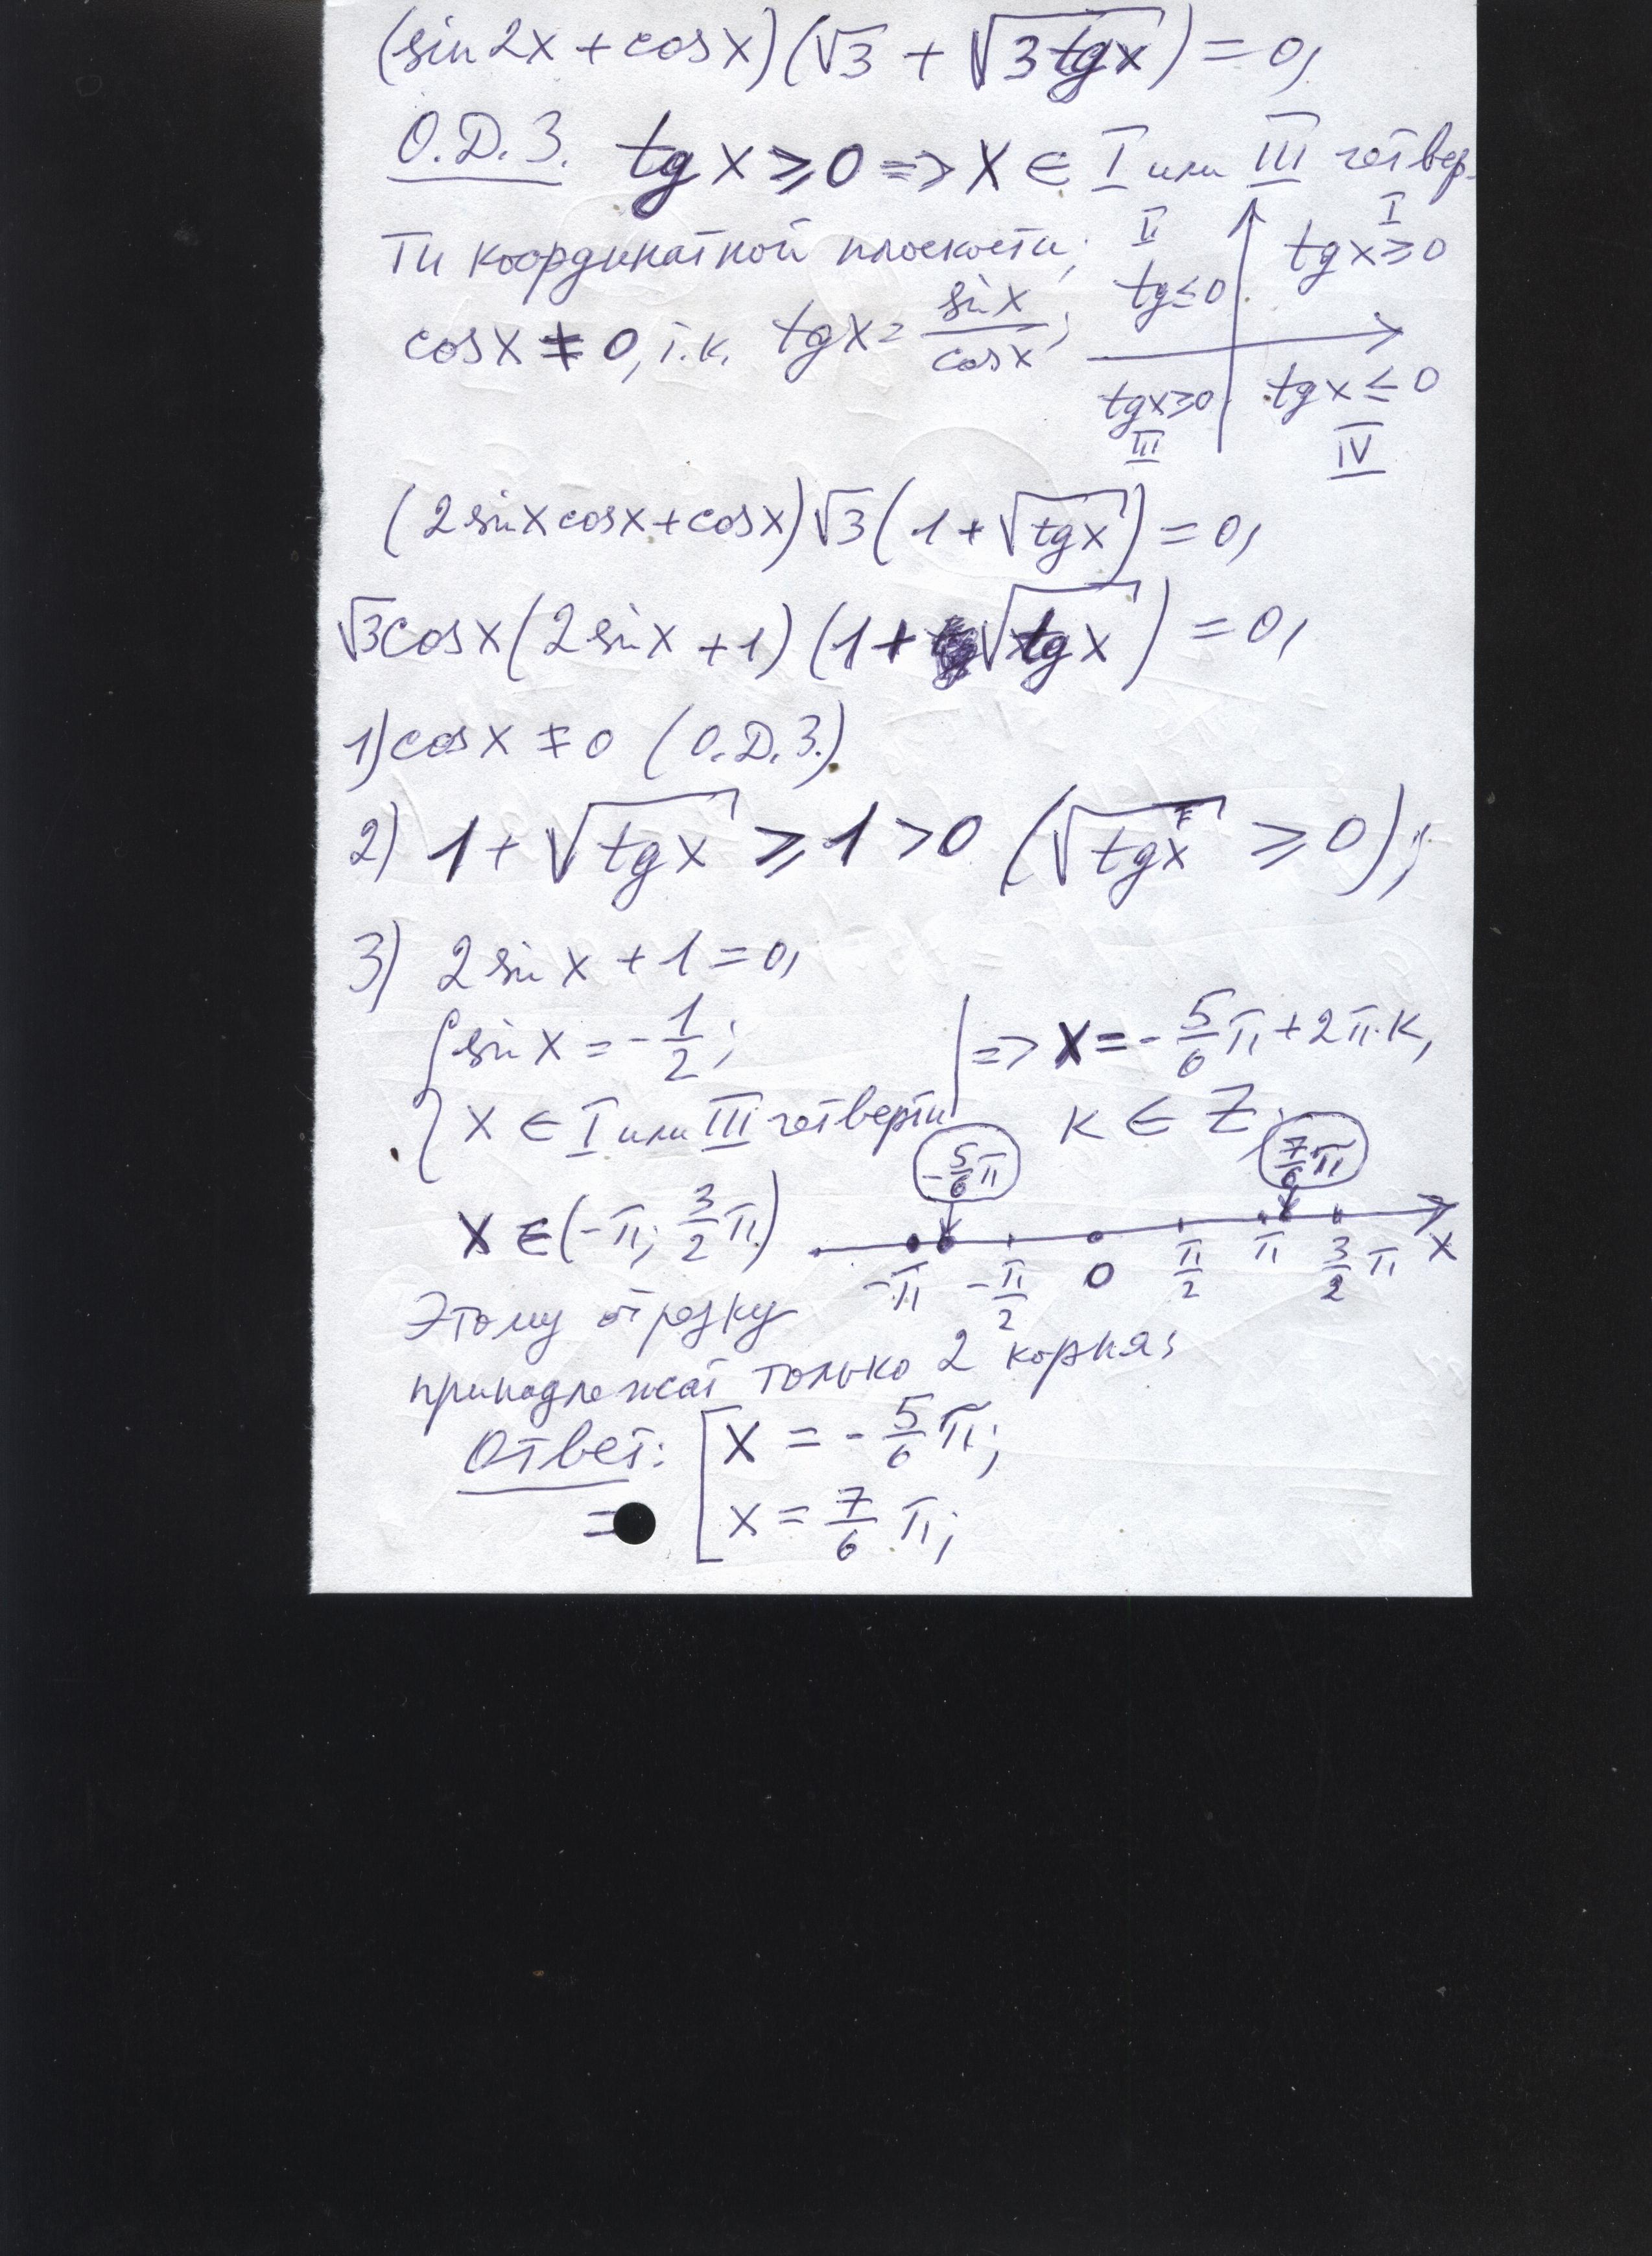 (sin2x + cosx)(√3 + √3tgx) = 0,
О.Д.З. tg x ⩾ 0 => X ∈ I или III четвер-
ти координатной плоскости;
cosx ≠ 0, т.к. tgx = sinx/cosx;
II
I
tg≤0
tgx≥0
tgx≥0
III
tgx≤0
IV
(2sinxcosx+cosx)√3(1+√tgx) = 0,
√3cosx(2sinx+1)(1+√tgx) = 0,
1) cosx ≠ 0 (О.Д.З.)
2) 1+√tgx ⩾ 1 > 0 (√tgx ⩾ 0);
3) 2sinx+1=0,
{ sinx = -1/2; | => x = -5/6π+2π·k,
{ x ∈ I или III четверти k ∈ Z;
-5/6π 7/6π
x ∈ (-π; 3/2π)
-π -π/2 0 π/2 π 3/2π x
Этому отрезку
принадлежат только 2 корня:
Ответ: [ x = -5/6π;
= [ x = 7/6π;